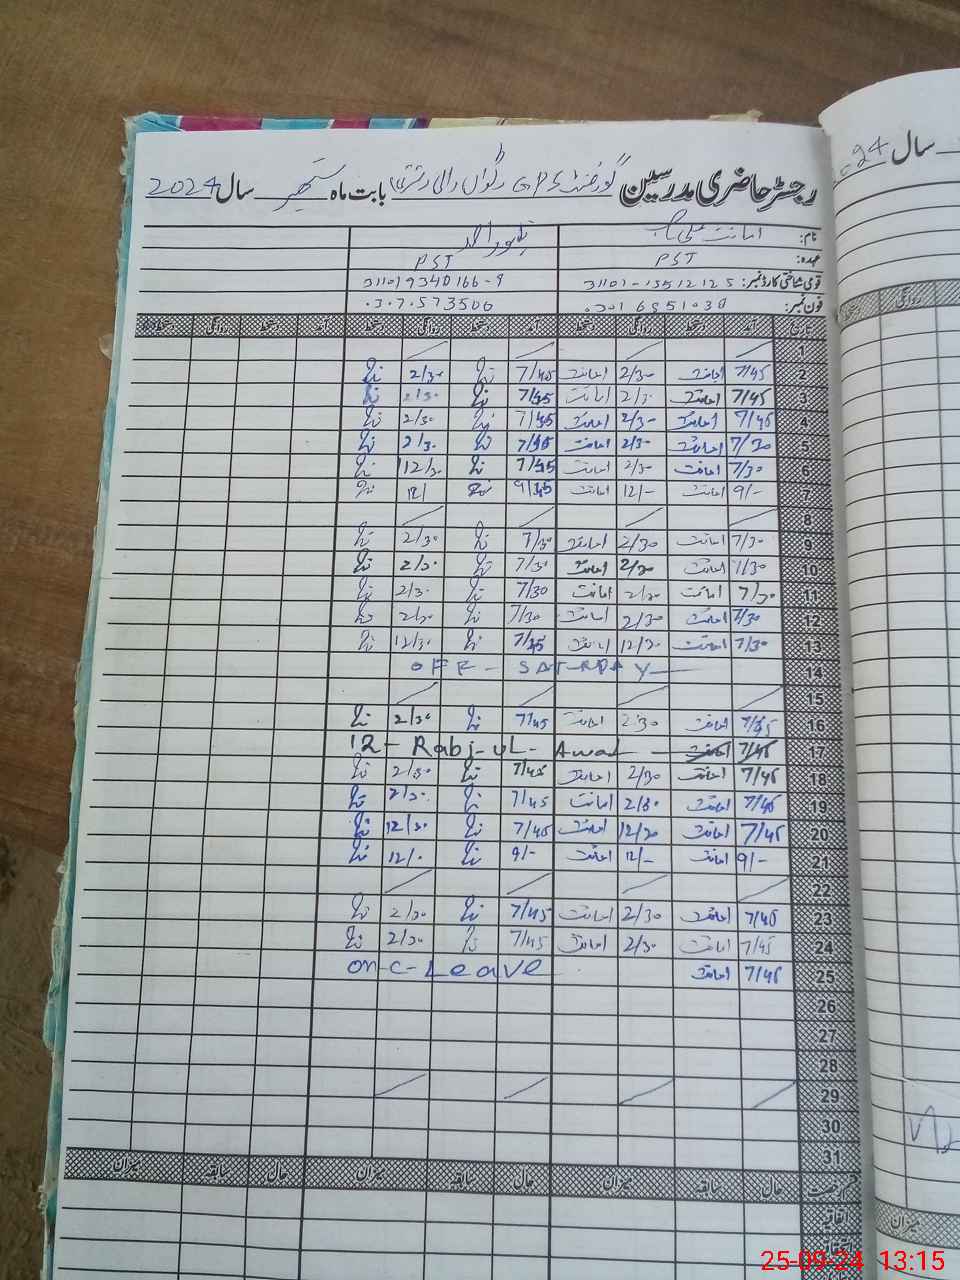 رجسٹر حاضری مدرسین گورنمنٹ GPS بابت ماہ ستمبر سال 2024
24 سال
نام: امانت علی
عہدہ: PST PST
قومی شناختی کارڈ نمبر: 31101-
فون نمبر:
تاریخ آمد دستخط روانگی دستخط آمد دستخط روانگی دستخط آمد دستخط روانگی دستخط
1
7/45 امانت 2/30 امانت 7/45 2/30
3 7/45 امانت 2/30 امانت 7/45 2/30
4 7/45 امانت 2/30 امانت 7/45 2/30
5 7/30 امانت 2/30 امانت 7/45 2/30
6 7/30 امانت 2/30 امانت 7/45 12/30
7 9/- امانت 12/- امانت 9/ 12/
8
9 7/30 امانت 2/30 امانت 7/30 2/30
10 7/30 امانت 2/30 امانت 7/30 2/30
11 7/30 امانت 2/30 امانت 7/30 2/30
12 7/30 امانت 2/30 امانت 7/30 2/30
13 7/30 امانت 12/30 امانت 7/45 12/30
14 OFF - SATURDAY
15
16 7/45 امانت 2/30 امانت 7/45 2/30
17 7/45 امانت 12 - Rabi-ul-Awal
18 7/45 امانت 2/30 امانت 7/45 2/30
19 7/45 امانت 2/30 امانت 7/45 2/30
20 7/45 امانت 12/30 امانت 7/45 12/30
21 9/- امانت 12/- امانت 9/- 12/-
22
23 7/45 امانت 2/30 امانت 7/45 2/30
24 7/45 امانت 2/30 امانت 7/45 2/30
25 7/45 امانت on-C-Leave
26
27
28
29
30
31
قسم رخصت حال سابقہ میزان حال سابقہ میزان حال سابقہ میزان
اتفاقیہ
میزان
25-09-24 13:15